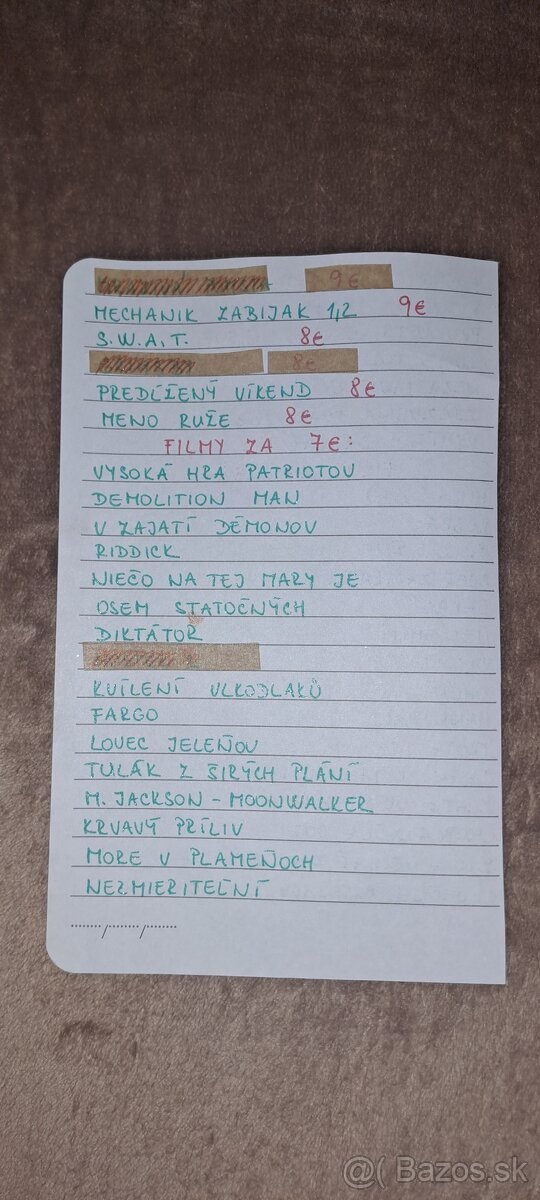 9€
MECHANIK ZABIJAK 1,2 9€
S.W.A.T. 8€
8€
PREDĹŽENÝ VÍKEND 8€
MENO RUŽE 8€
FILMY ZA 7€:
VYSOKÁ HRA PATRIOTOV
DEMOLITION MAN
V ZAJATÍ DÉMONOV
RIDDICK
NIEČO NA TEJ MARY JE
OSEM STATOČNÝCH
DIKTÁTOR
KVÍLENÍ VLKODLAKŮ
FARGO
LOVEC JELEŇOV
TULÁK Z ŠIRÝCH PLÁNÍ
M. JACKSON - MOONWALKER
KRVAVÝ PRÍLIV
MORE V PLAMEŇOCH
NEZMIERITEĽNÍ
......../......../........
@( Bazos.sk